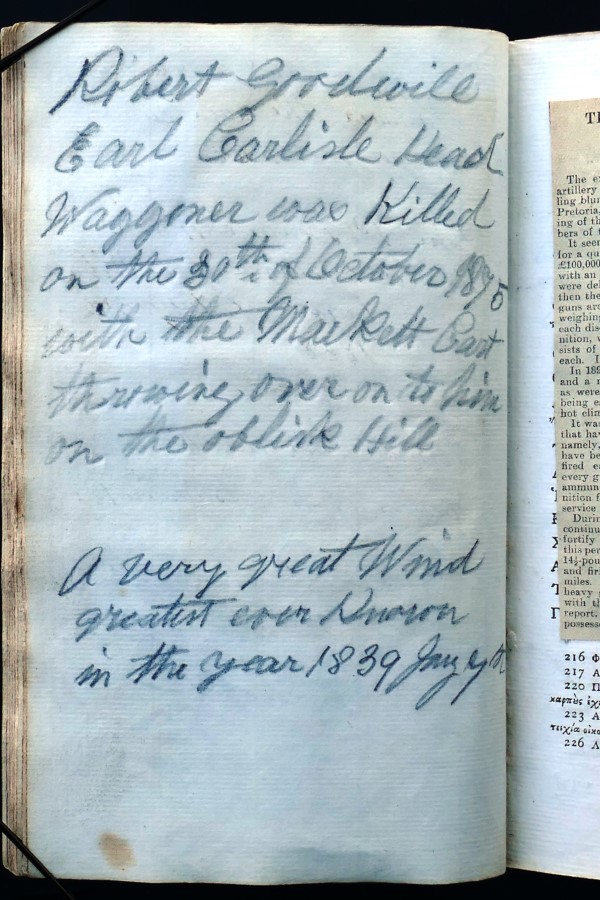 Robert Goodwill
Earl Carlisle Head
Waggoner was Killed
on the 30th of October 1875
with the Markett Cart
throwing over on to him
on the oblisk Hill
A very great Wind
greatest ever Knowon
in the year 1839 Jany 7th
TH
The ex
artillery
ling blun
Pretoria,
ing of th
bers of t
It seem
for a qu
£100,000
with an
were del
then the
guns are
weighing
each dis
nition, w
sists of
each. I
In 189
and a n
as were
being ea
hot elim
It was
that hav
namely,
have be
fired ea
every g
ammun
nition f
service
Durin
continu
fortify
this per
14½-poun
and fir
miles.
heavy g
with th
report,
possess
216 Φ
217 Α
220 Π
καρπὸς ἐχ
223 Α
τειχία οἰκο
226 Λ